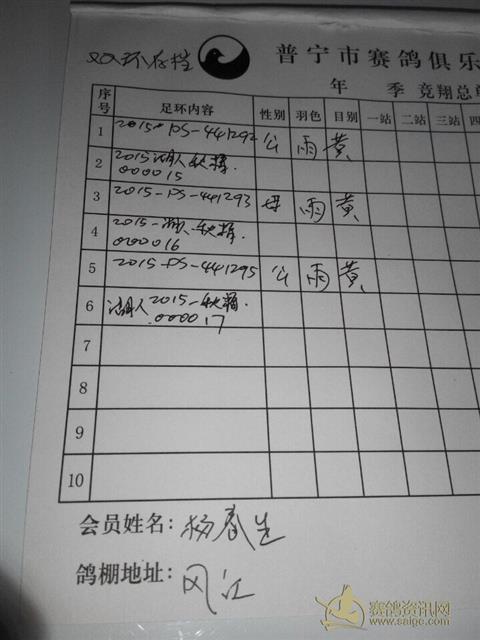 双环存档 普宁市赛鸽俱乐
年 季 竞翔总单
序号 足环内容 性别 羽色 目别 一站 二站 三站 四
1 2015-PS-441292 公 雨 黄
2 2015
000015
3 2015-PS-441293 母 雨 黄
4 2015-
000016
5 2015-PS-441295 公 雨 黄
6 2015-
000017
7
8
9
10
会员姓名：杨春生
鸽棚地址：风江
赛鸽资讯网
www.saige.com